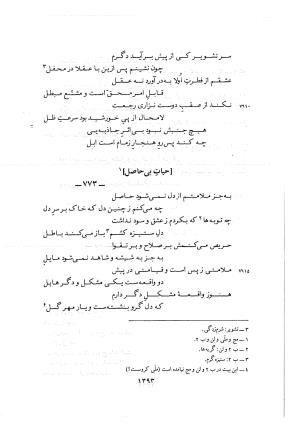 سر تشویر کی از پیش برآید دگرم
چون نشینم پس ازین با عقلا در محفل۳
عشقم از فطرت اولا به در آورد نه عقل
قابل امر محق است و مشنّع مبطل
۷۹۱۰ نکند از عقب دوست نزاری رجعت
لامحال از پی خورشید بود سرعت ظل
هیچ جنبش نبود بی‌اثر جاذبه‌یی
چه کند پس‌رو هنجار زمام است ابل
[حیات بی حاصل]۱
ـ ۷۷۳ ـ
به‌جز ملامتم از دل نمی‌شود حاصل
چه می‌کنم ز چنین دل که خاک بر سر دل
چه توبه‌ها۲ که بکردم ز عشق و سود نداشت
دل ستیزه کشم۳ باز می‌کند باطل
حریص می‌کنمش بر صلاح و بر تقوا
به جز به شیشه و شاهد نمی‌شود مایل
۷۹۱۵ ملامتی ز پس است و قیامتی در پیش
دو واقعه‌ست یکی مشکل و دگر هایل
هنوز واقعهٔ مشکل دگر دارم
که دل گرو بنشسته‌ست و یار مهر گسل۴
۳ – تشویر: شرم‌زدگی.
۱ – مج و ملی و لن و ب ۲.
۲ – ب ۲ و لن: گربه‌ها.
۳ – ب ۲: ستیزه گرم.
۴ – این بیت در ب ۲ و لن و مج نیامده است (ملی کروست؟)
۱۳۹۳